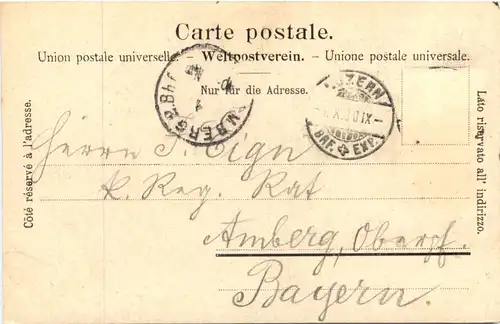 Carte postale.
Union postale universelle. – Weltpostverein. – Unione postale universale.
Nur für die Adresse.
Côté réservé à l'adresse.
Lato riservato all' indirizzo.
AMBERG 2.Bhf.
LUZERN
BRF. EXP.
Herrn J. Eign
k. Reg. Rat
Amberg, Oberpf.
Bayern.